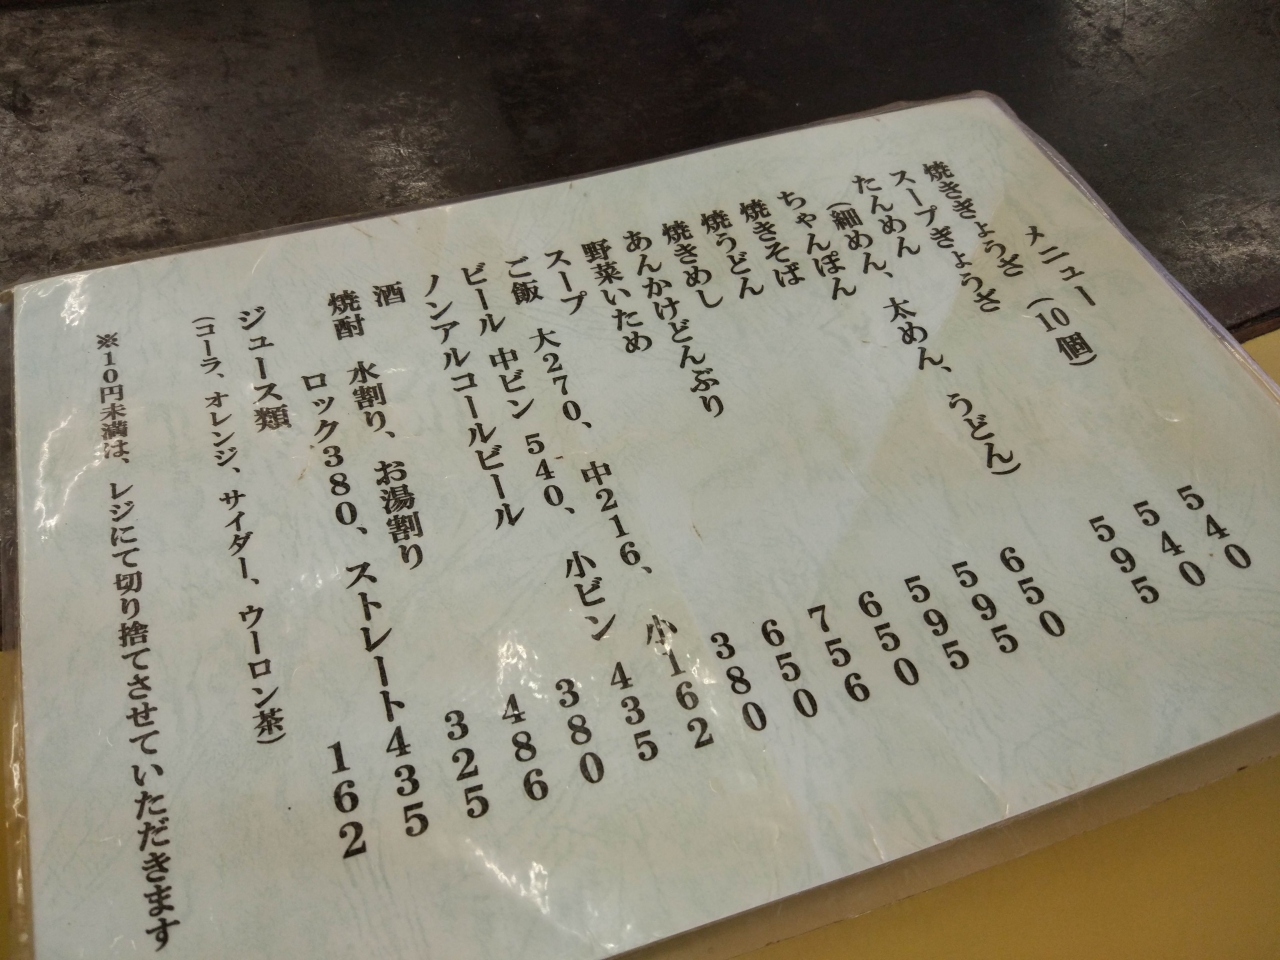 メニュー
焼きぎょうざ (10個) 540
スープぎょうざ 540
たんめん 595
(細めん、太めん、うどん)
ちゃんぽん 650
焼きそば 595
焼うどん 595
焼きめし 650
あんかけどんぶり 756
野菜いため 650
スープ 380
ご飯 大270、中216、小162
ビール 中ビン 540、小ビン 435
ノンアルコールビール 380
酒 486
焼酎 水割り、お湯割り 325
ロック380、ストレート435
ジュース類 162
(コーラ、オレンジ、サイダー、ウーロン茶)
※10円未満は、レジにて切り捨てさせていただきます